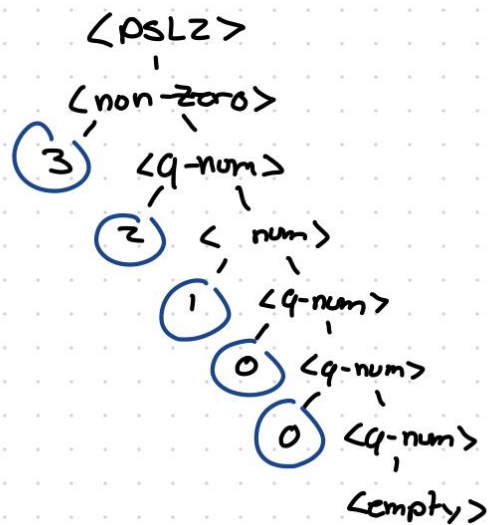 <PSLZ>
<non-zoro>
3 <q-num>
2 < num>
1 <q-num>
0 <q-num>
0 <q-num>
<empty>